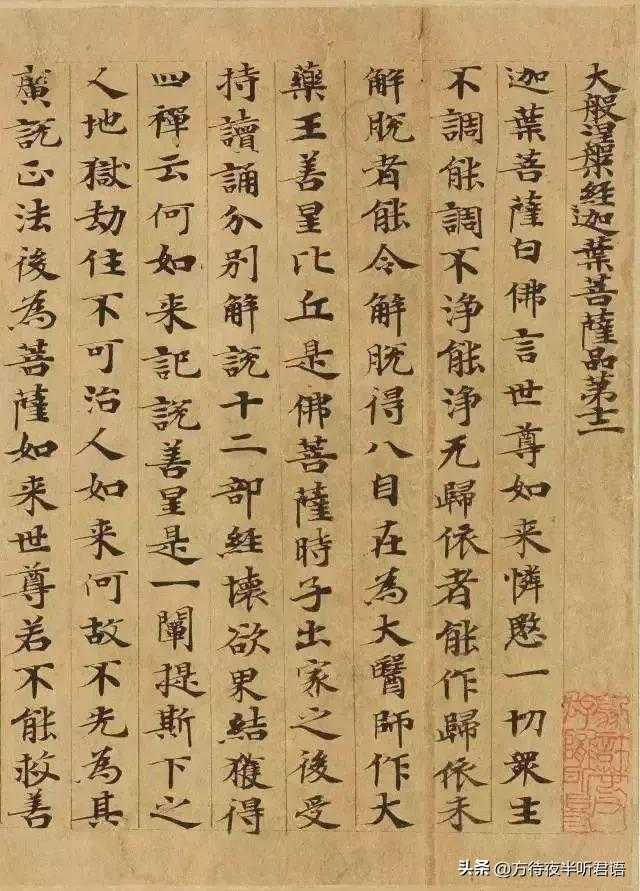 大般涅槃經迦葉菩薩品第十二
迦葉菩薩白佛言世尊如来憐愍一切衆生
不調能調不淨能淨无歸依者能作歸依未
解脱者能令解脱得八自在為大醫師作大
藥王善星比丘是佛菩薩時子出家之後受
持讀誦分别解説十二部經壞欲界結獲得
四禪云何如来記説善星是一闡提斯下之
人地獄劫住不可治人如来何故不先為其
廣説正法後為菩薩如来世尊若不能救善
头条 @方待夜半听君语